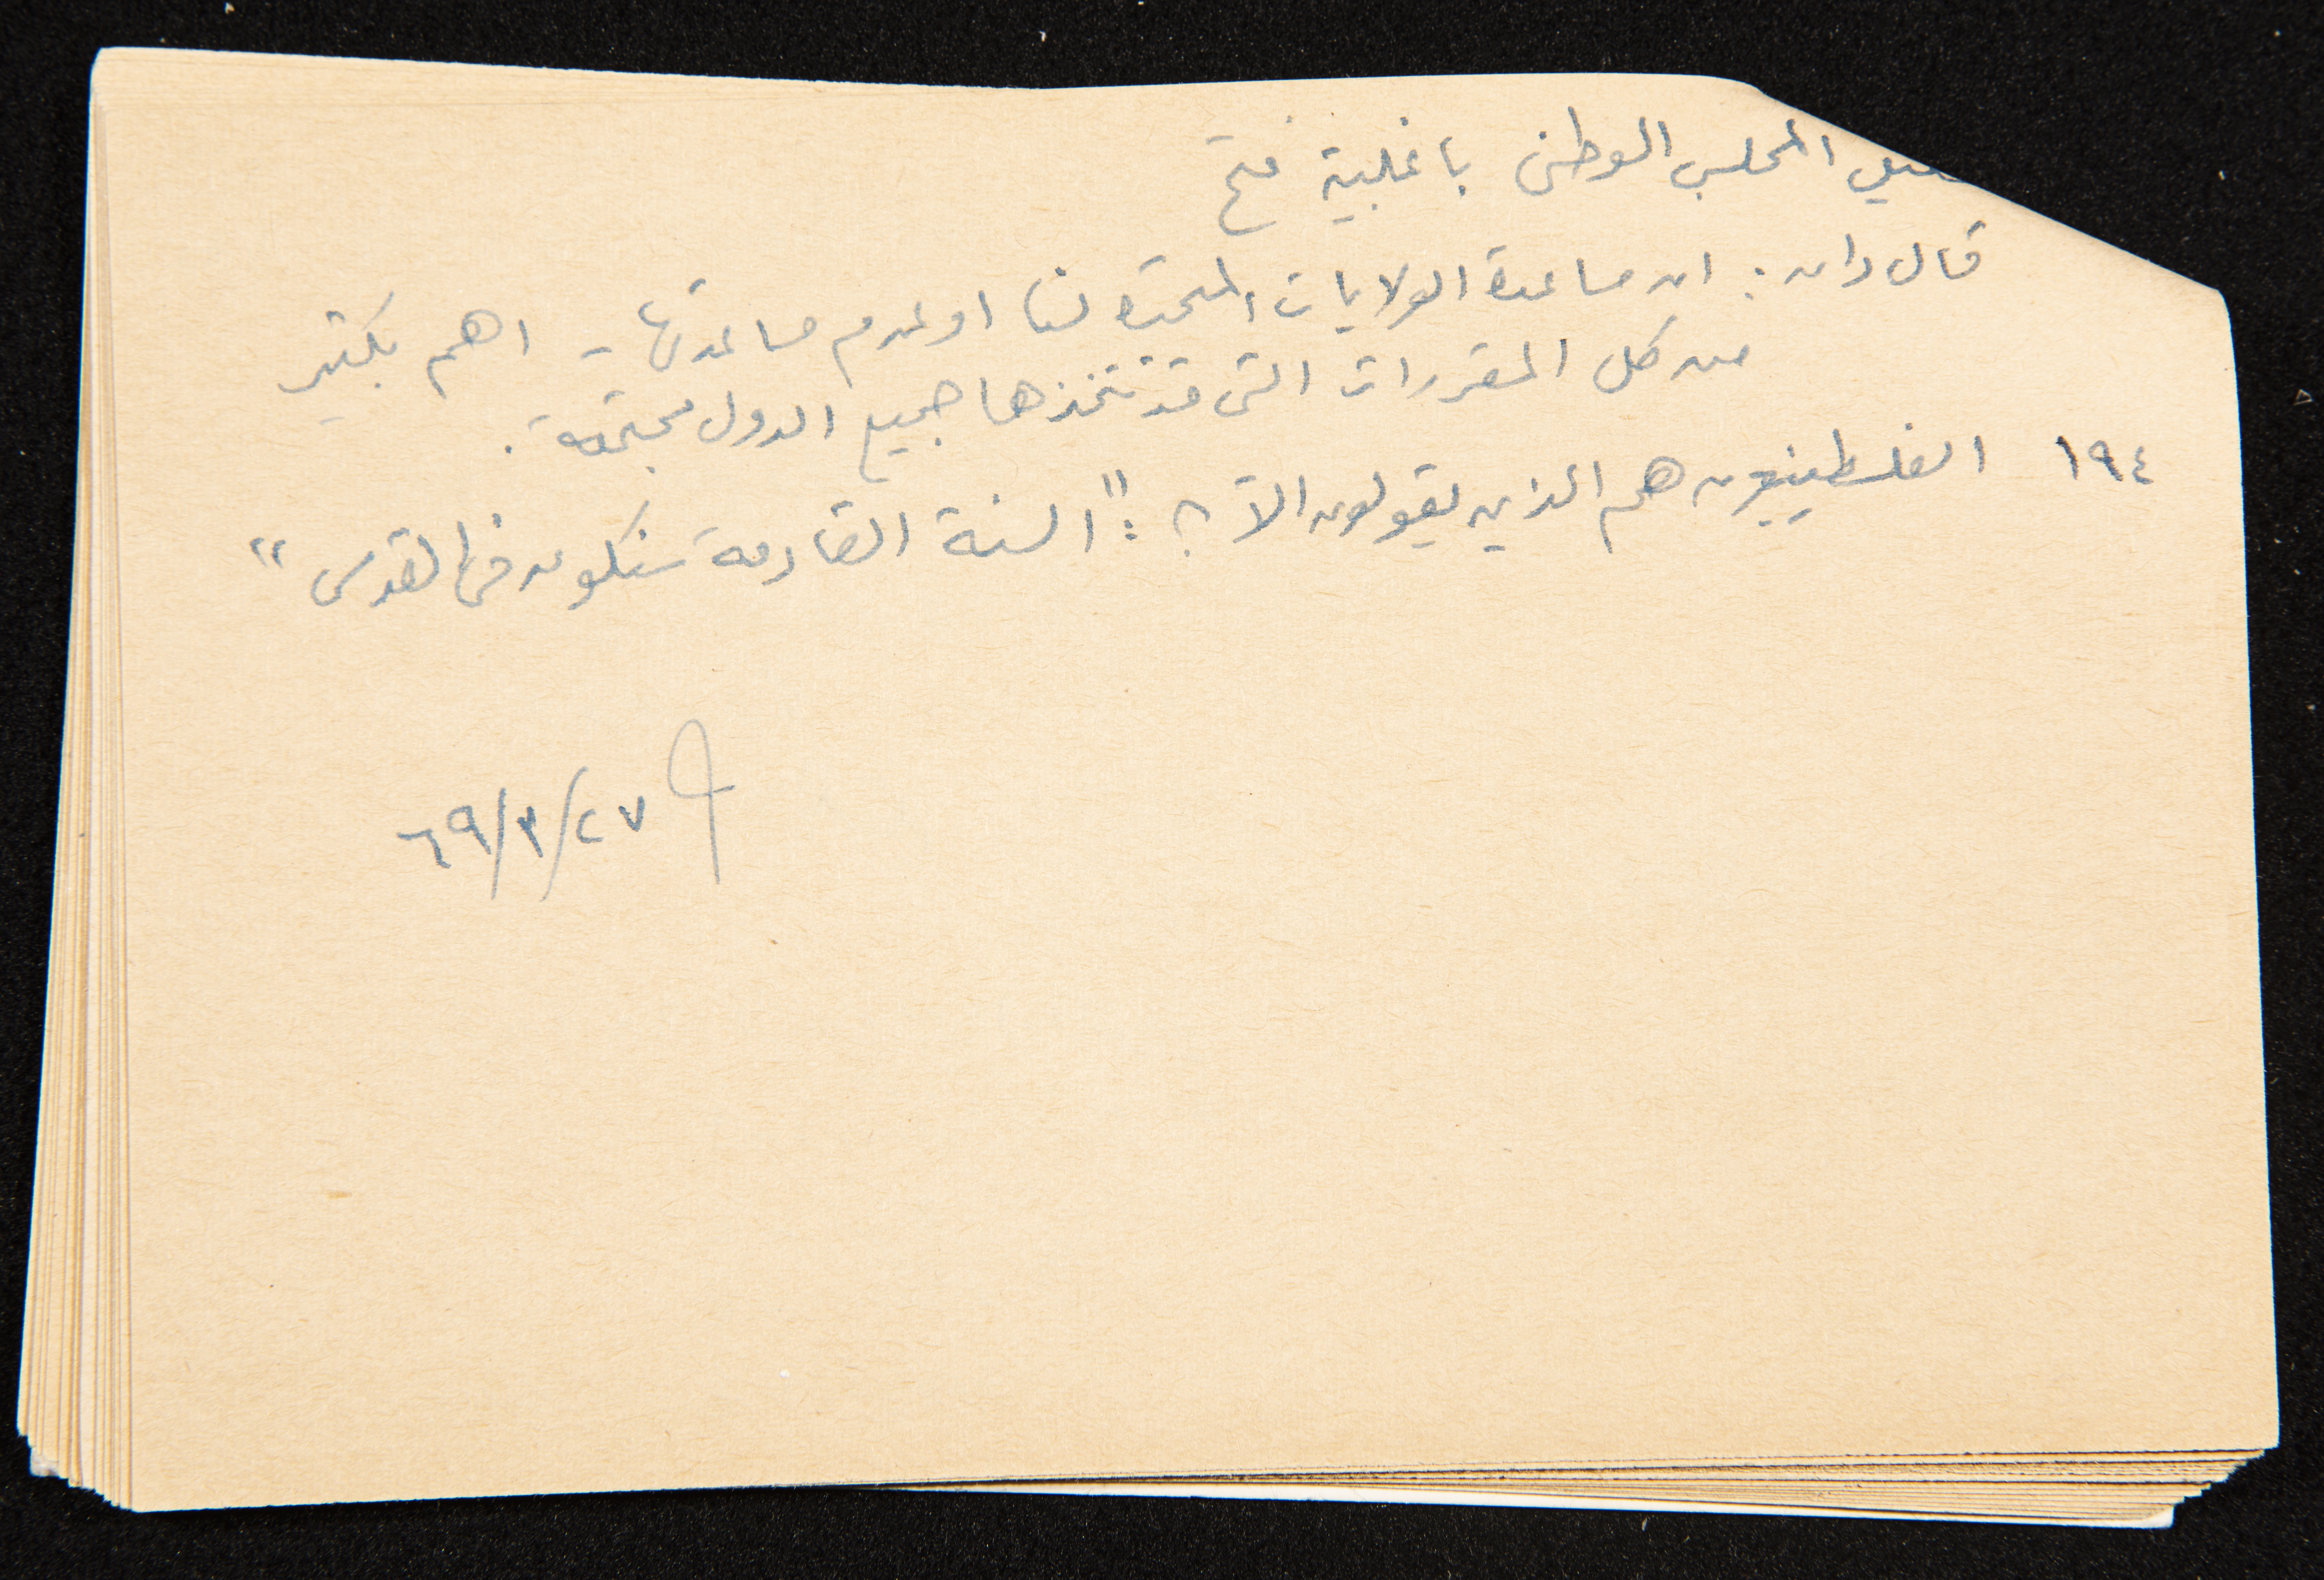 المجلس الوطني باغلبية فتح
قال دان: ان مساعدة الولايات المتحدة لنا او عدم مساعدتها - اهم بكثير
من كل المقررات التي قد تتخذها جميع الدول مجتمعة.
١٩٤ الفلسطينيون هم الذين يقولون الآن: "السنة القادمة سنكون في القدس"
٦٩/٣/٢٧